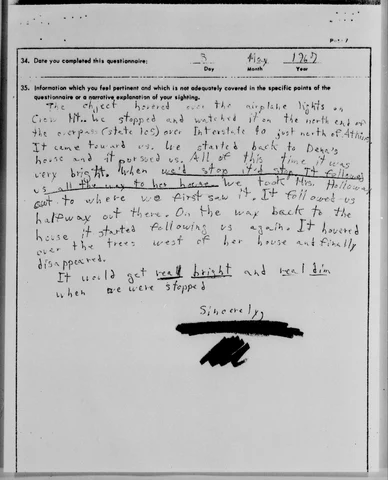 34. Date you completed this questionnaire: 3 May 1967
Day Month Year
35. Information which you feel pertinent and which is not adequately covered in the specific points of the
questionnaire or a narrative explanation of your sighting.
The object hovered over the airplane lights on
Crow Mt.. We stopped and watched it on the north end of
the overpass (state 105) over Interstate 40 just north of Atkins.
It came toward us. We started back to Dena's
house and it pursued us. All of this time it was
very bright. When we'd stop it'd stop. It followed
us all the way to her house. We took Mrs. Holloway
out to where we first saw it. It followed us
halfway out there. On the way back to the
house it started following us again. It hovered
over the trees west of her house and finally
disappeared.
It would get real bright and real dim
when we were stopped
Sincerely,